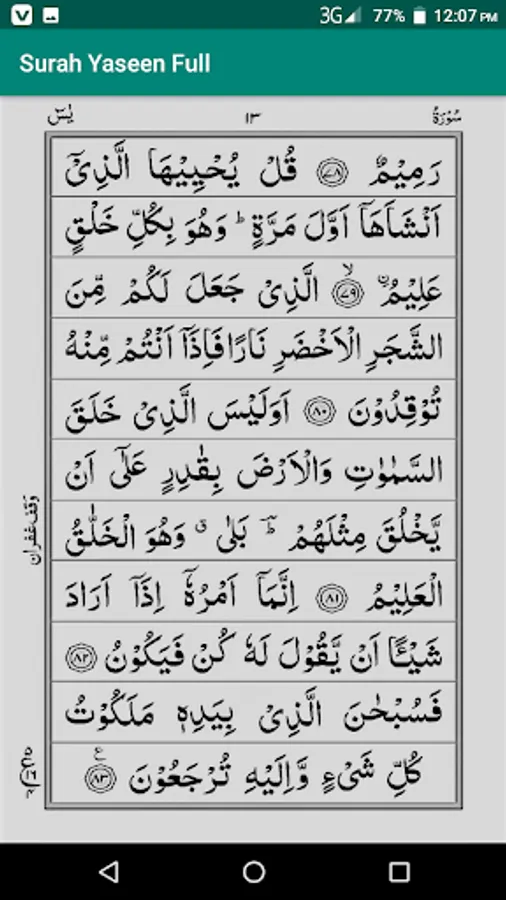 3G 77% 12:07 PM
Surah Yaseen Full
سُوْرَةُ ١٣ يٰسٓ
رَمِيْمٌ ﴿٧٨﴾ قُلْ يُحْيِيْهَا الَّذِيْۤ
اَنْشَاَهَاۤ اَوَّلَ مَرَّةٍ ؕ وَهُوَ بِكُلِّ خَلْقٍ
عَلِيْمُ ۨ ﴿٧٩﴾ ۙ الَّذِيْ جَعَلَ لَكُمْ مِّنَ
الشَّجَرِ الْاَخْضَرِ نَارًا فَاِذَاۤ اَنْتُمْ مِّنْهُ
تُوْقِدُوْنَ ﴿٨٠﴾ اَوَلَيْسَ الَّذِيْ خَلَقَ
السَّمٰوٰتِ وَالْاَرْضَ بِقٰدِرٍ عَلٰۤى اَنْ
يَّخْلُقَ مِثْلَهُمْ ؕ بَلٰى ۗ وَهُوَ الْخَلّٰقُ
وقف غفران
الْعَلِيْمُ ﴿٨١﴾ اِنَّمَاۤ اَمْرُهٗۤ اِذَاۤ اَرَادَ
شَيْـًٔا اَنْ يَّقُوْلَ لَهٗ كُنْ فَيَكُوْنُ ﴿٨٢﴾
فَسُبْحٰنَ الَّذِيْ بِيَدِهٖ مَلَكُوْتُ
كُلِّ شَيْءٍ وَّاِلَيْهِ تُرْجَعُوْنَ ﴿٨٣﴾ ع